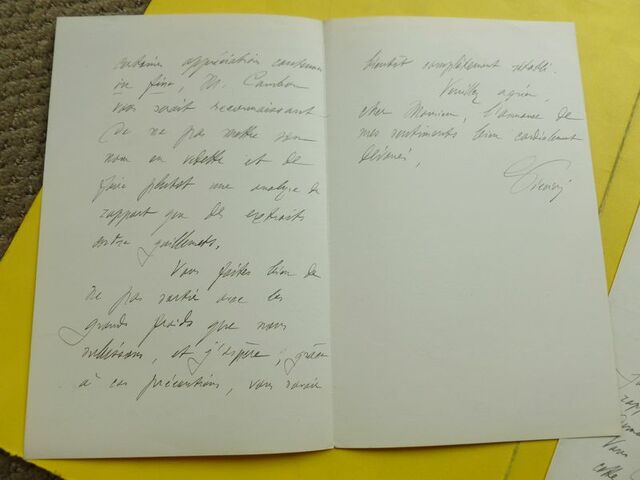 certaine appréciation contenue
in fine, M. Cambon
vous serait reconnaissant
de ne pas mettre son
nom en vedette et de
faire plutôt une analyse du
rapport que des extraits
entre guillemets.
Vous faites bien de
ne pas sortir avec les
grands froids que nous
subissons, et j'espère, grâce
à ces précautions, vous savoir
bientôt complètement rétabli.
Veuillez agréer,
cher Monsieur, l'assurance de
mes sentiments bien cordialement
dévoués,